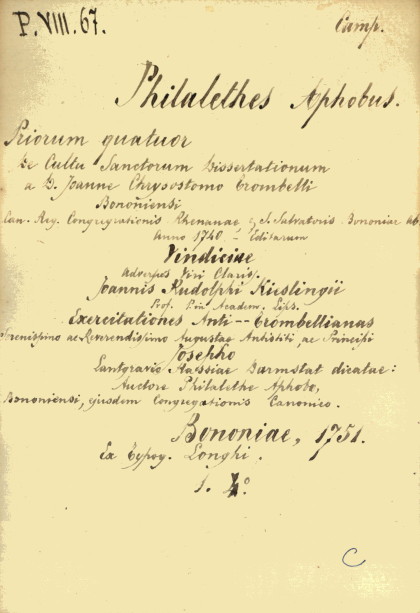 P. VIII. 67.
Camp.
Philalethes Aphobus.
Priorum quatuor
de Cultu Sanctorum Dissertationum
a D. Joanne Chrysostomo Trombelli
Bononiensi
Can. Reg. Congregationis Rhenanae & S. Salvatoris Bononiae Ab
Anno 1740 - Editarum
Vindiciae
Adversus Viri Clariss.
Joannis Rudolphi Kieslingii
Prof. Acadaem. Lips.
Exercitationes Anti--Trombellianas
Serenissimo ac Reverendissimo Augustae Antistiti ac Principi
Josepho
Lantgravio Hassiae Darmstat dicatae:
Auctore Philalethe Aphobo,
Bononiensi, ejusdem Congregationis Canonico.
Bononiae, 1751.
Ex Typog. Longhi.
1. 4.º
C